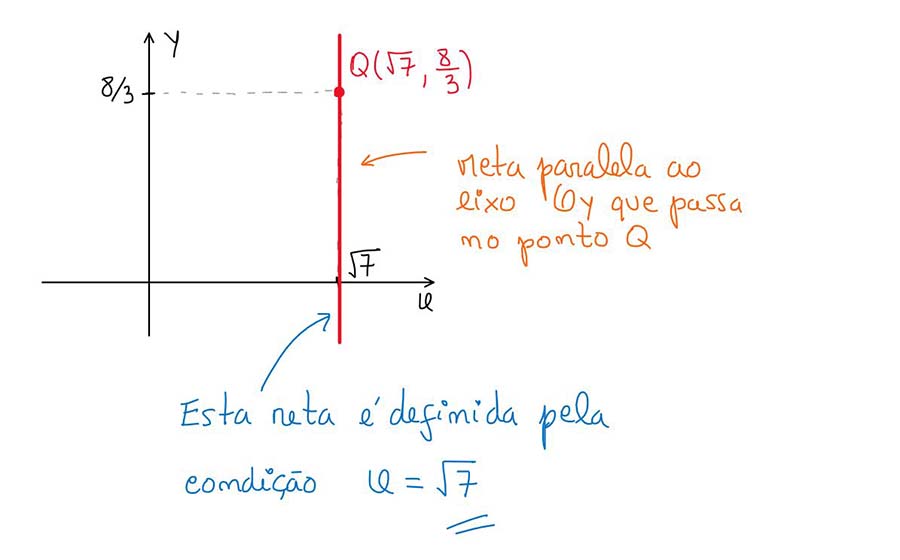 y
8/3
Q(√7, 8/3)
reta paralela ao
eixo Oy que passa
no ponto Q
√7
x
Esta reta é definida pela
condição x = √7